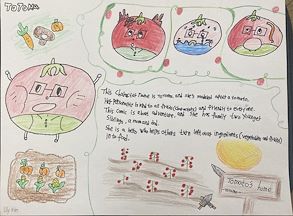 TOTOMA
This Character name is totoma, and she's modeled about a tomato.
Her personality is kind to all fruits (comments) and friendly to everyone.
This comic is about adventure, and She has family two younger
Siblings, a mom and dad.
She is a hero who helps others the delicious ingredients (vegetables and fruits)
to find.
Tomato's home